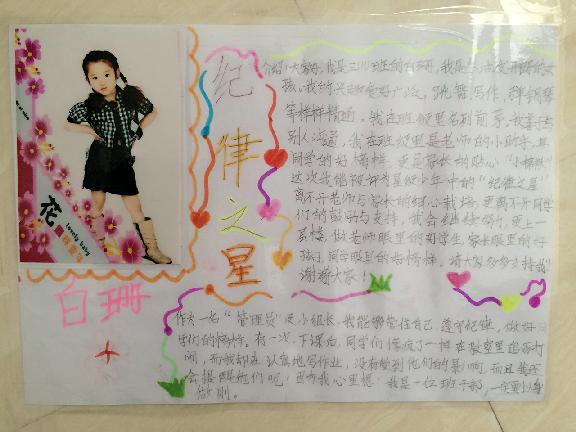 纪律之星
白珊
花
lovely baby
大家好,我是三(1)班的白珊,我是
孩,我的兴趣爱好广泛,跳舞、写作、弹钢琴
等样样精通。我在班级里名列前茅,我喜欢与
别人沟通,我在班级里是老师的小助手,是
同学的好榜样,更是家长的贴心“小棉袄”
这次我能被评为星级少年中的“纪律之星”
离不开老师与家长的细心栽培,更离不开同学
们的鼓励与支持,我会继续努力,更上一
层楼,做老师眼里的好学生,家长眼里的好
孩子,同学眼里的好榜样。请大家多多支持我!
谢谢大家!
作为一名“管理员”及小组长,我能够管住自己,遵守纪律,做好
学们的榜样。有一次,下课后,同学们像疯了一样在教室里追逐打
闹,而我却在认真地写作业,没有受到他们的影响,而且我还
会提醒他们呢!因为我心里想:我是一位班干部,一定要以身
做则。